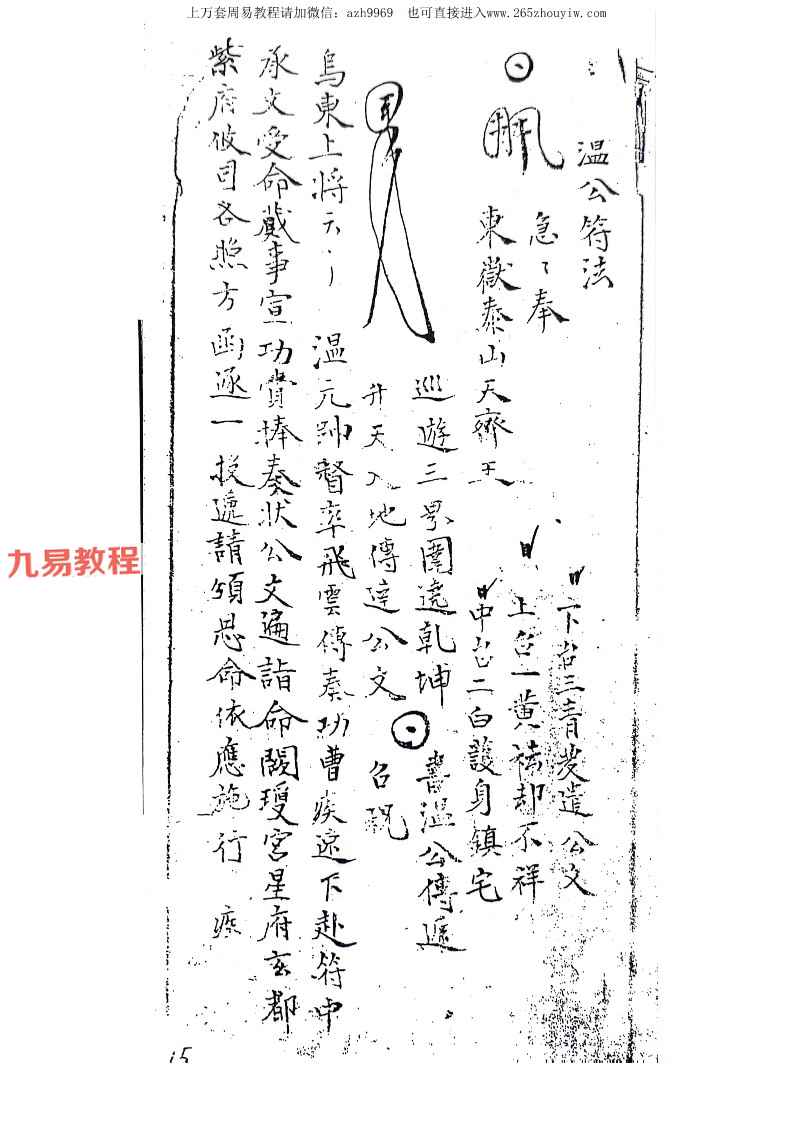 上万套周易教程请加微信：azh9969 也可直接进入www.265zhouyiw.com
温公符法
急々奉
東嶽泰山天齊王
下台三青發遣公文
上台一黃祛却不祥
中台二白護身鎮宅
巡遊三界圍遶乾坤
書温公傳遞
升天入地傳達公文
召
烏東上將
温元帥督率飛雲傳奏功曹疾速下赴符中
承文受命蕆事宣功賞捧奏狀公文遍詣命闕瓊宮星府玄都
紫府攸司各照方函逐一投遞請頒恩命依應施行
九易教程
15